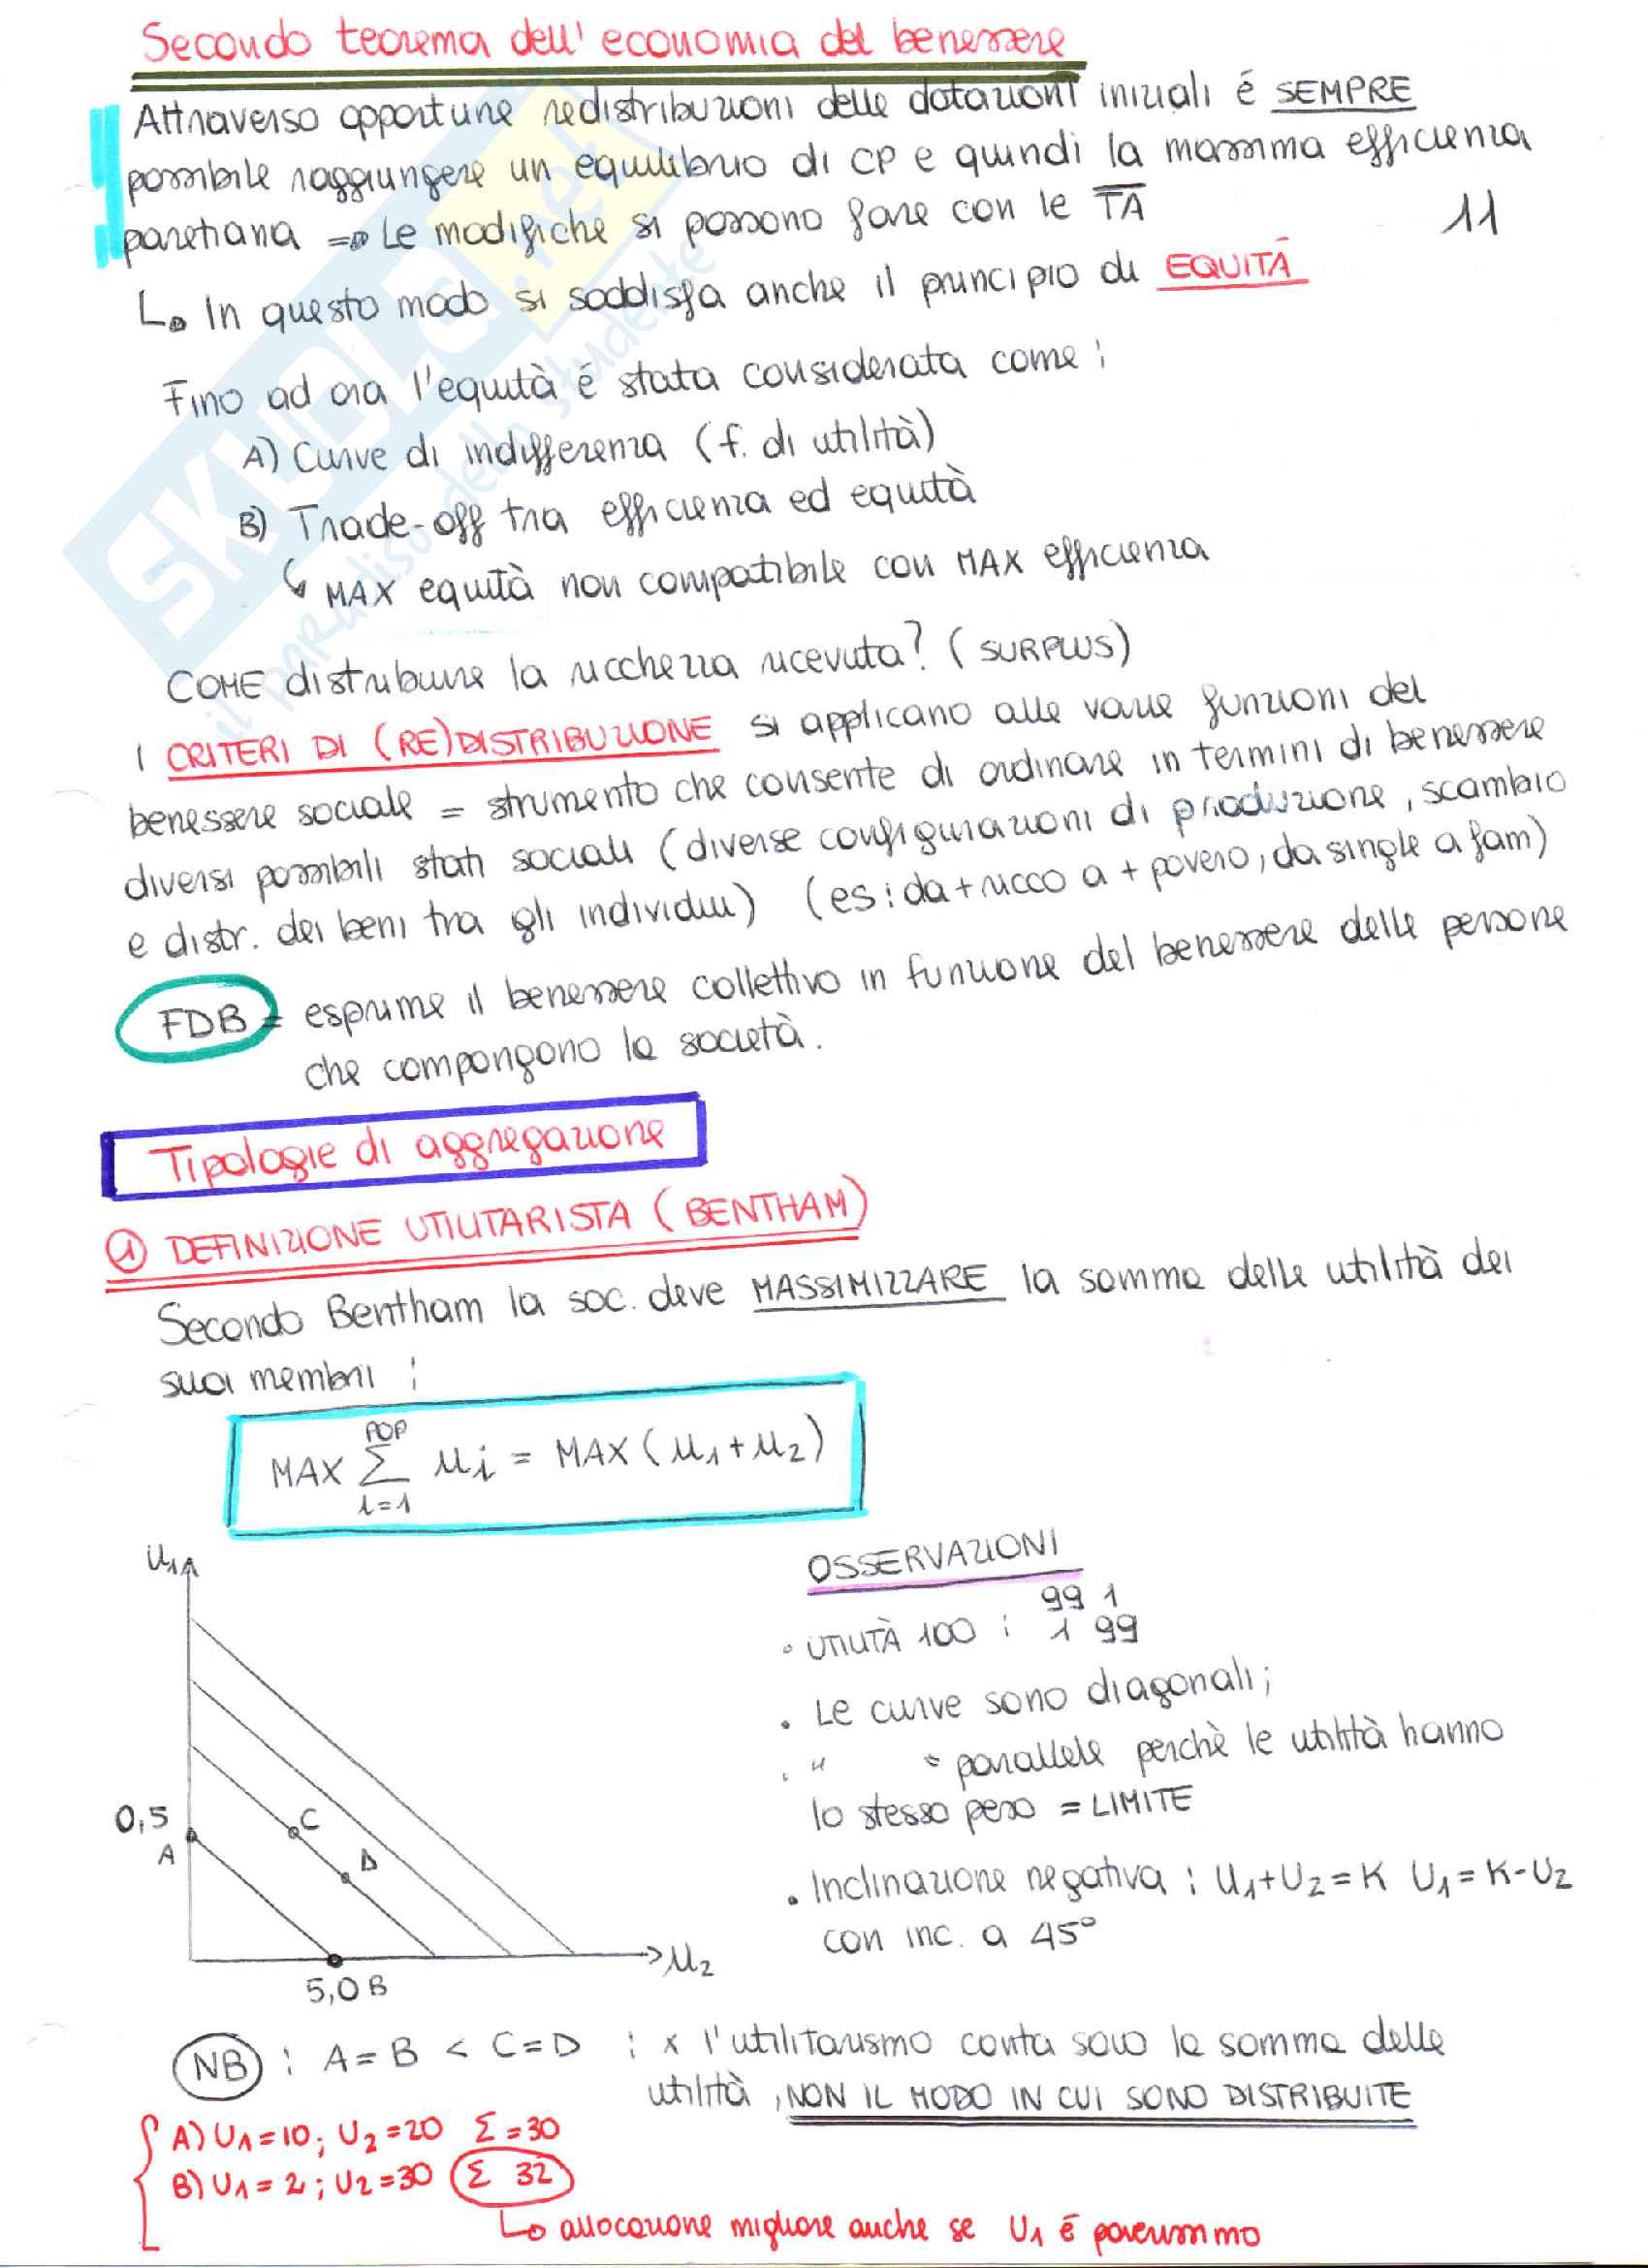 Secondo teorema dell'economia del benessere
Attraverso opportune redistribuzioni delle dotazioni iniziali é SEMPRE
possibile raggiungere un equilibrio di CP e quindi la massima efficienza
paretiana => Le modifiche si possono fare con le TA
11
↳ In questo modo si soddisfa anche il principio di EQUITÀ
Fino ad ora l'equità é stata considerata come:
A) Curve di indifferenza (f. di utilità)
B) Trade-off tra efficienza ed equità
↳ MAX equità non compatibile con MAX efficienza
COME distribuire la ricchezza ricevuta? (SURPLUS)
I CRITERI DI (RE)DISTRIBUZIONE si applicano alle varie funzioni del
benessere sociale = strumento che consente di ordinare in termini di benessere
diversi possibili stati sociali (diverse configurazioni di produzione, scambio
e distr. dei beni tra gli individui) (es: da + ricco a + povero, da single a fam)
FDB = esprime il benessere collettivo in funzione del benessere delle persone
che compongono la società.
Tipologie di aggregazione
① DEFINIZIONE UTILITARISTA (BENTHAM)
Secondo Bentham la soc. deve MASSIMIZZARE la somma delle utilità dei
suoi membri:
POP
MAX Σ ui = MAX (u1+u2)
i=1
U1
OSSERVAZIONI
99 1
• UTILITÀ 100 : 1 99
• Le curve sono diagonali;
• " " parallele perchè le utilità hanno
lo stesso peso = LIMITE
• Inclinazione negativa : U1+U2=K U1=K-U2
con inc. a 45°
0,5
A
C
D
5,0 B
u2
NB : A=B < C=D : x l'utilitarismo conta solo la somma delle
utilità, NON IL MODO IN CUI SONO DISTRIBUITE
A) U1=10; U2=20 Σ=30
B) U1=2; U2=30 Σ 32
↳ allocazione migliore anche se U1 é poverissimo
SKUOLA.net
il paradiso dello studente